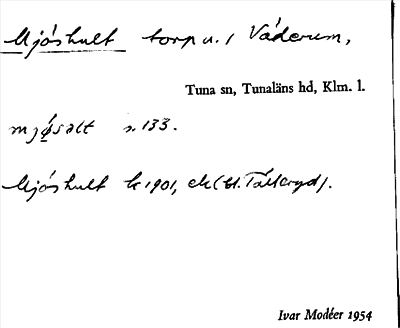 Mjöshult torp u. / Väderum,
Tuna sn, Tunaläns hd, Klm. l.
s. 133.
Mjöshult k 1901, ek (bl. Tälleryd).
Ivar Modéer 1954